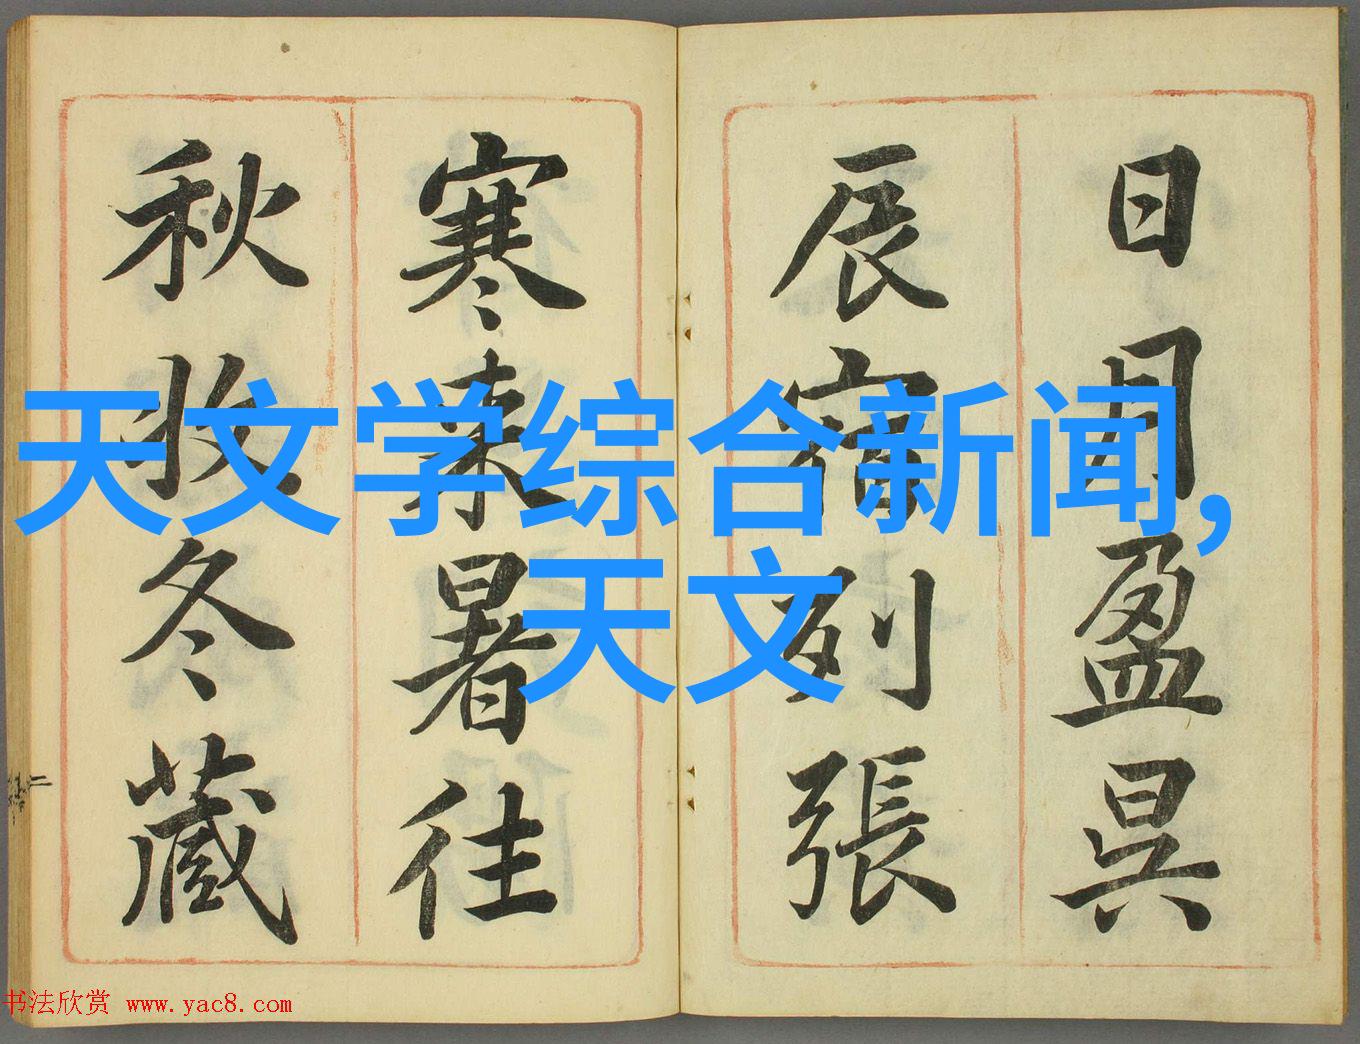 日月盈昃
辰宿列張
寒來暑往
秋收冬藏
天文学综合新闻,
天文
书法欣赏 www.yac8.com